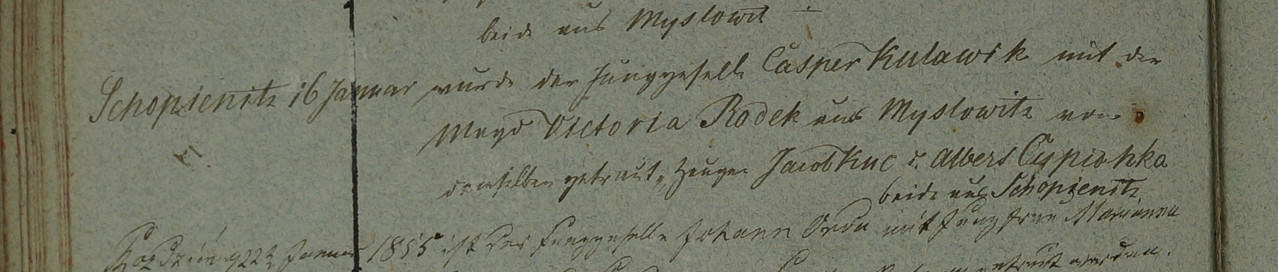 beide aus Myslowit –
Schopienitz 16 Januar wurde der Junggeselle Casper Kulawik mit der
Magd Victoria Rodek aus Myslowitz von
demselben getraut, Zeugen Jacob Kuc u. Albers Cypionka
beide aus Schopienitz
22 Januar 1855 ist der Junggeselle Johann mit Jungfrau Marianna
getraut worden.